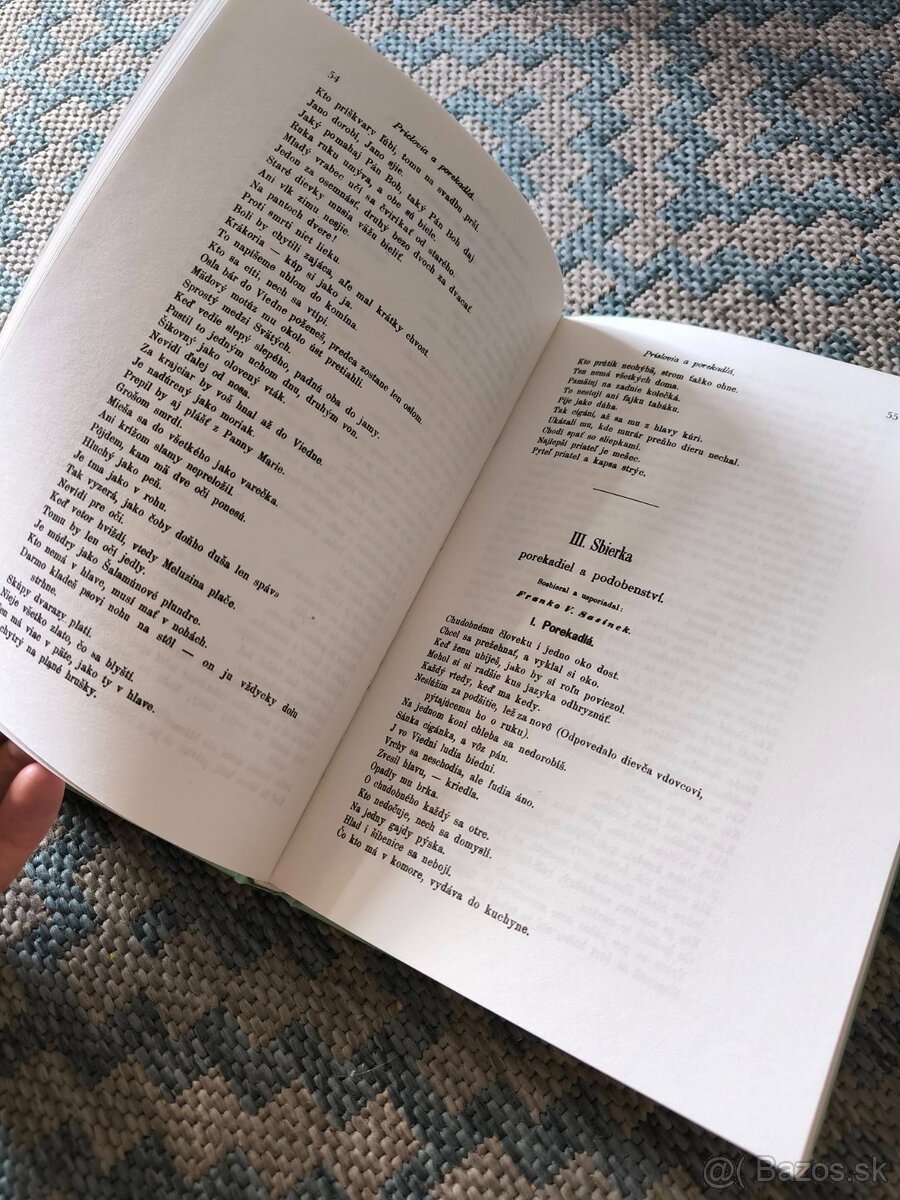 54
Príslovia a porekadlá.
Kto príškvary ľúbi, tomu na svadbu prší.
Jano dorobí, Jano zjie.
Jaký pomahaj Pán Boh, taký Pán Boh daj.
Ruka ruku umýva, a obe sú biele.
Mladý vrabec učí sa čvirikať od starého.
Jedon za osemnásť, druhý bezo dvoch za dvacať.
Staré dievky musia väžu bieliť.
Ani vlk zimu nesjie.
Na pantoch dvere!
Proti smrti niet lieku.
Boli by chytili zajáca, aľe mal krátky chvost.
Krákoria — kdp si jako ja.
To napíšeme uhlom do komína.
Kto sa cíti, nech sa vtipí.
Osla bár do Viedne poženeš, predca zostane len oslom.
Mädový motúz mu okolo úst pretiahli.
Sprostý medzi Svätých.
Keď vedie slepý slepého, padnú oba do jamy.
Pustil to jedným uchom dnu, druhým von.
Šikovný jako olovený vták.
Nevidí ďalej od nosa.
Za krajciar by voš hnal až do Viedne.
Je nadúrený jako moriak.
Prepil by aj plášť z Panny Marie.
Grošom smrdí.
Mieša sa do všetkého jako varečka.
Ani krížom slamy nepreložil.
Pôjdem, kam mä dve oči ponesú.
Hluchý jako peň.
Je tma jako v rohu.
Tak vyzerá, jako čoby doňho duša len spáva
Nevidí pre oči.
Keď vetor hviždí, vtedy Meluzína plače.
Tomu by len oči jedly.
Je múdry jako Šalamúnové plundre.
Kto nemá v hlave, musí mať v nohách.
Darmo kladeš psovi nohu na stôl — on ju vždycky dolu
strhne.
Skúpy dvarazy platí.
Nieje všetko zlato, čo sa blyští.
má viac v päte, jako ty v hlave.
chytrý na plané hrušky.
Príslovia a porekadlá.
55
Kto prútik nechýbä, strom ťažko ohne.
Ten nemá všetkých doma.
Pamätaj na zadnie kolečká.
To nestojí ani fajku tabáku.
Pije jako dúha.
Tak cigáni, až sa mu z hlavy kúri.
Ukázali mu, kde murár preňho dieru nechal.
Chodí spať so sliepkami.
Najlepší priateľ je mešec.
Pyteľ priatel a kapsa strýc.
III. Sbierka
porekadiel a podobenství.
Sosbieral a usporiadal:
Franko V. Sasinek.
I. Porekadlá.
Chudobnému človeku i jedno oko dost.
Chcel sa prežehnať, a vyklal si oko.
Keď ženu ubiješ, jako by si roľu poviezol.
Mohol si si radšie kus jazyka odhryznúť.
Každý vtedy, keď ma kedy.
Neslúžim za podšitie, lež za novô (Odpovedalo dievča vdovcovi,
pýtajúcemu ho o ruku).
Na jednom koni chleba sa nedorobíš.
Sánka cigánka, a vôz pán.
J vo Viedni ľudia biedni.
Vrchy sa neschodia, ale ľudia áno.
Zvesil hlavu, — kriedla.
Opadly mu brka.
O chudobného každý sa otre.
Kto nedočuje, nech sa domyslí.
Na jedny gajdy pýska.
Hlad i šibenice sa nebojí.
Čo kto má v komore, vydáva do kuchyne.
@( Bazos.sk